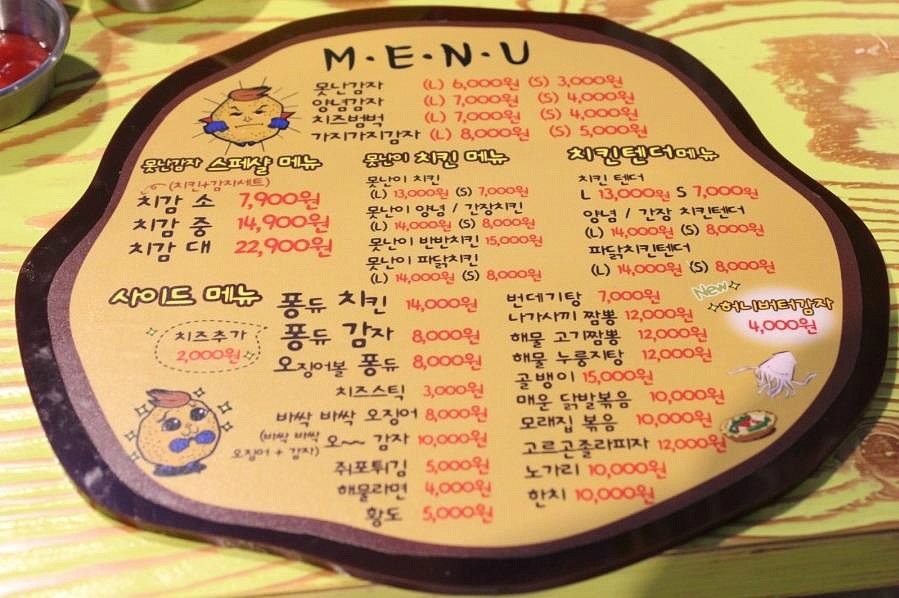 M·E·N·U
못난감자 (L) 6,000원 (S) 3,000원
양념감자 (L) 7,000원 (S) 4,000원
치즈범벅 (L) 7,000원 (S) 4,000원
가지가지감자 (L) 8,000원 (S) 5,000원
못난감자 스페샬 메뉴
(치킨+감자세트)
치감 소 7,900원
치감 중 14,900원
치감 대 22,900원
못난이 치킨 메뉴
못난이 치킨
(L) 13,000원 (S) 7,000원
못난이 양념 / 간장치킨
(L) 14,000원 (S) 8,000원
못난이 반반치킨 15,000원
못난이 파닭치킨
(L) 14,000원 (S) 8,000원
치킨텐더메뉴
치킨 텐더
L 13,000원 S 7,000원
양념 / 간장 치킨텐더
(L) 14,000원 (S) 8,000원
파닭치킨텐더
(L) 14,000원 (S) 8,000원
사이드 메뉴
치즈추가
2,000원
퐁듀 치킨 14,000원
퐁듀 감자 8,000원
오징어볼 퐁듀 8,000원
치즈스틱 3,000원
바싹 바싹 오징어 8,000원
(바싹 바싹
오징어 + 감자)
오~~ 감자 10,000원
쥐포튀김 5,000원
해물라면 4,000원
황도 5,000원
번데기탕 7,000원
나가사끼 짬뽕 12,000원
해물 고기짬뽕 12,000원
해물 누룽지탕 12,000원
골뱅이 15,000원
매운 닭발볶음 10,000원
모래집 볶음 10,000원
고르곤졸라피자 12,000원
노가리 10,000원
한치 10,000원
New
허니버터감자
4,000원